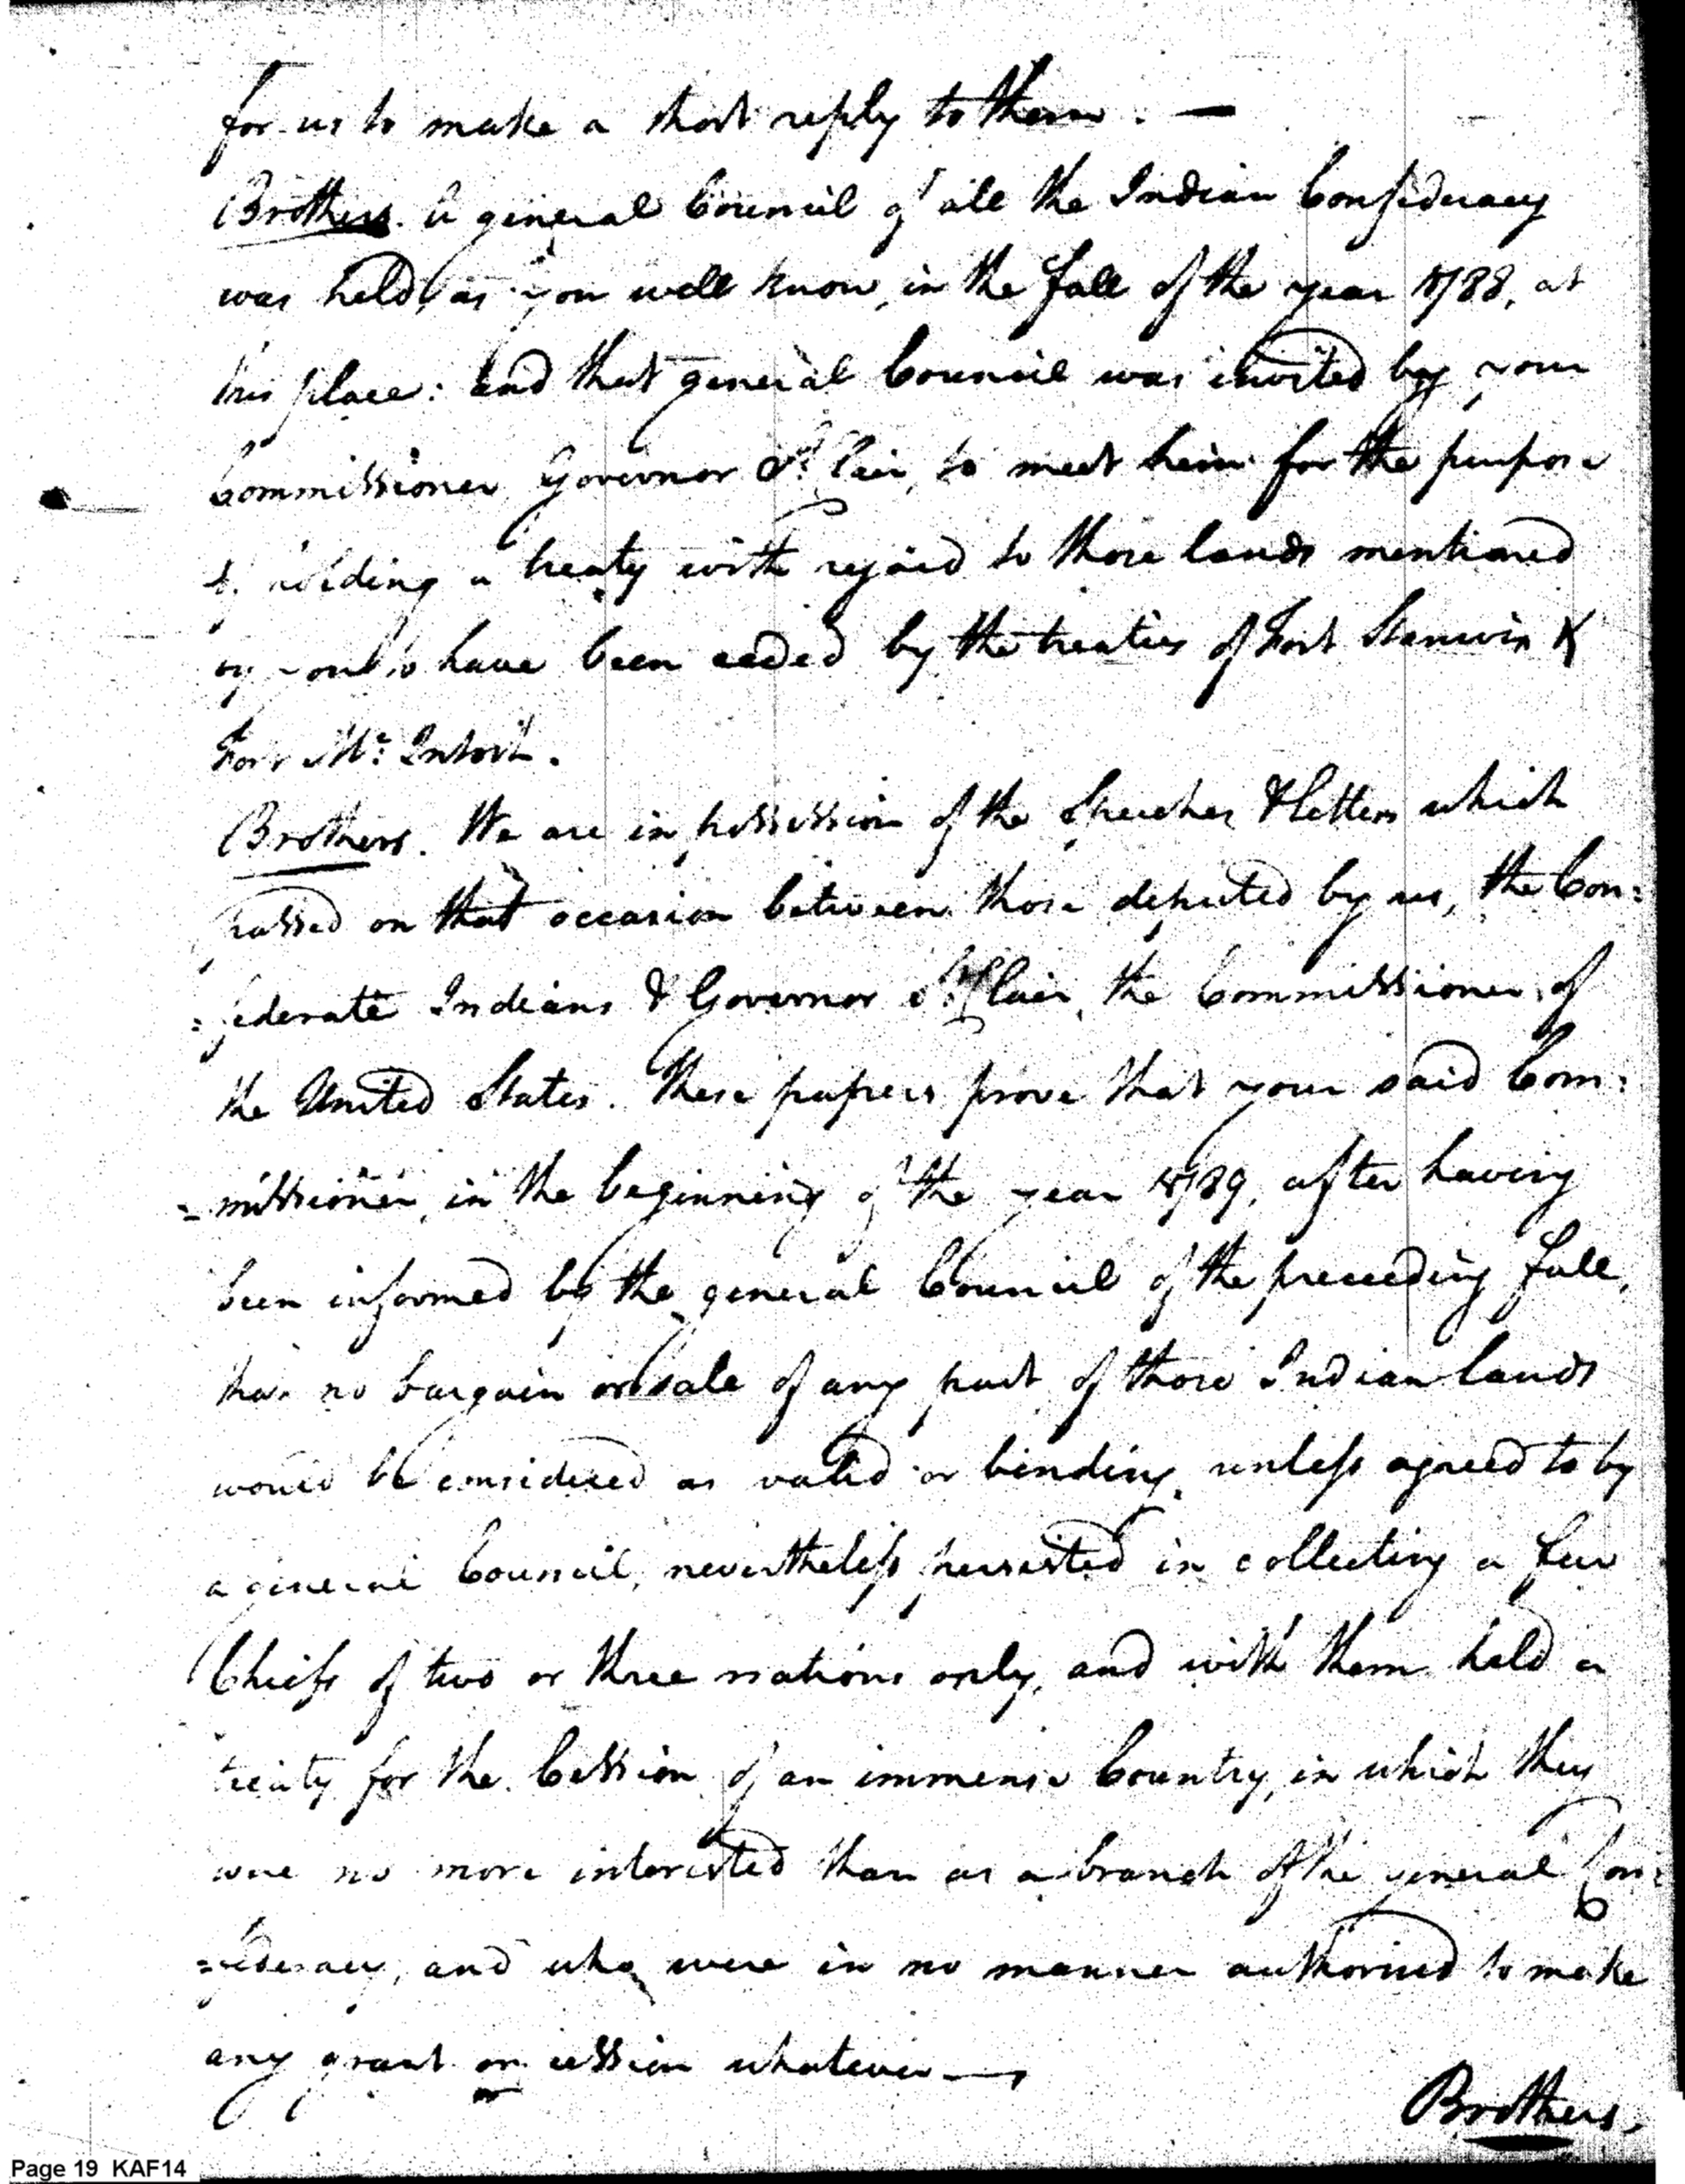 for us to make a short reply to them. —
Brothers. A general Council of all the Indian Confederacy
was held, as you well know, in the fall of the year 1788, at
this place: and that general Council was invited by your
Commissioner Governor St. Clair, to meet him for the purpose
of holding a treaty with regard to those lands mentioned
by you to have been ceded by the treaties of Fort Stanwix &
Fort Mc: Intosh.
Brothers. We are in possession of the Speeches & Letters which
passed on that occasion between those deputed by us, the Con:
:federate Indians & Governor St. Clair, the Commissioner of
the United States. These papers prove that your said Com:
=missioner, in the beginning of the year 1789, after having
been informed by the general Council of the preceeding fall,
that no bargain or sale of any part of those Indian lands
would be considered as valid or binding, unless agreed to by
a general Council, nevertheless persisted in collecting a few
Chiefs of two or three nations only, and with them held a
treaty for the Cession of an immense Country, in which they
were no more interested than as a branch of the general Con:
=federacy, and who were in no manner authorised to make
any grant or cession whatever —
Brothers.
Page 19 KAF14